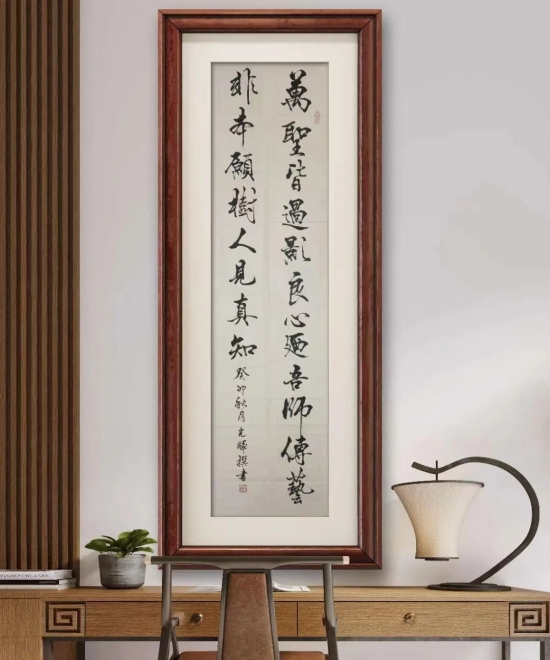 萬聖皆過影良心廼吾師傳藝
非本願樹人見真知
癸卯秋月撰書